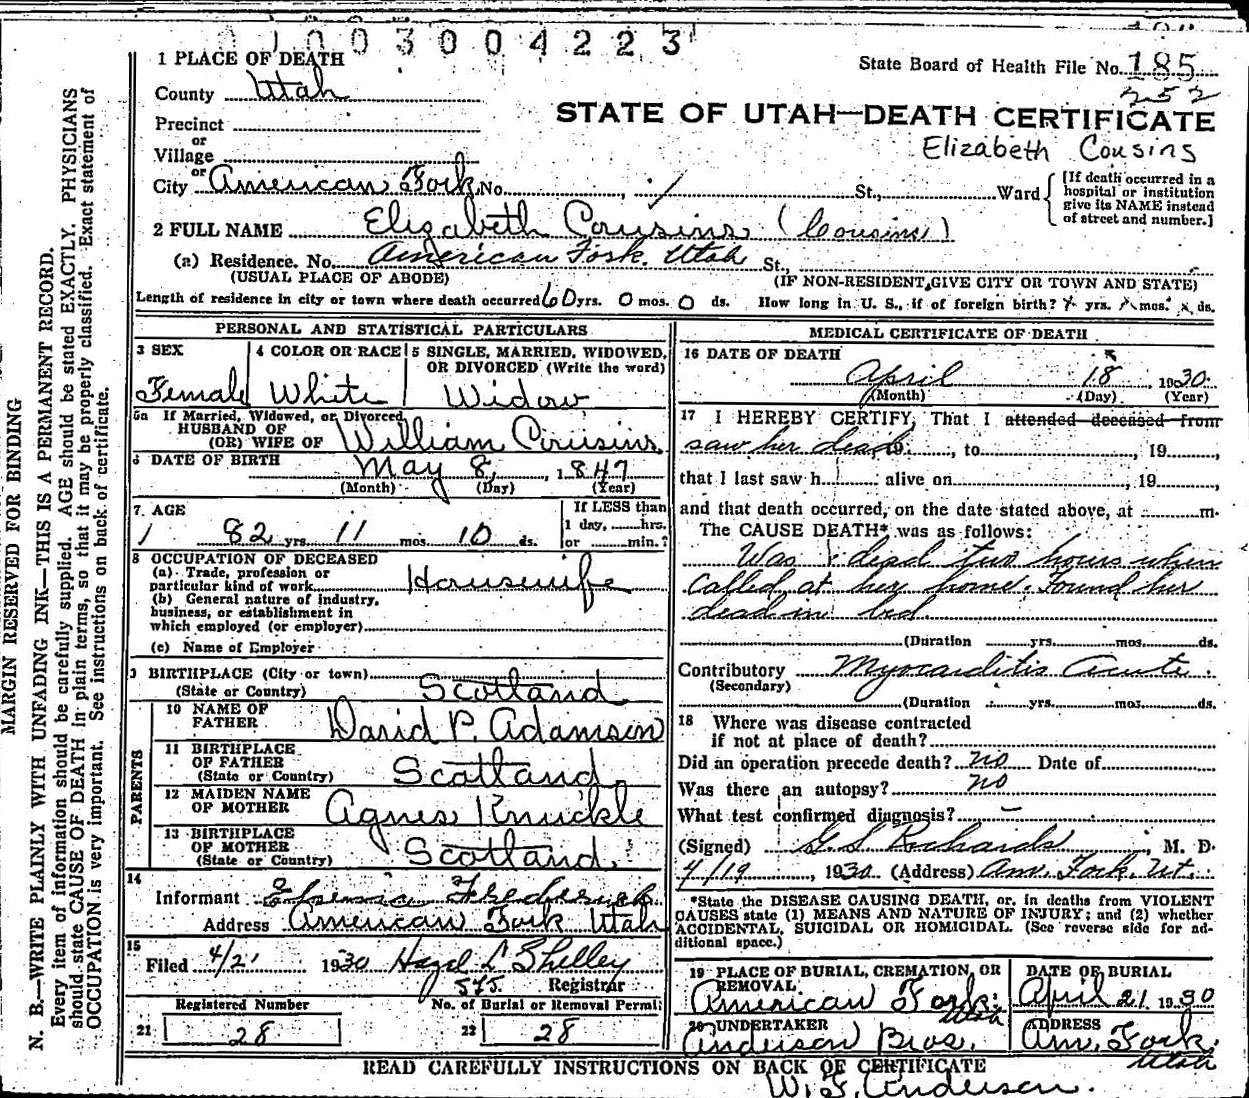 01003004223
1 PLACE OF DEATH
State Board of Health File No. 185
252
County Utah
STATE OF UTAH—DEATH CERTIFICATE
Precinct
Elizabeth Cousins
or
Village
or
City American Fork No. , St., Ward
[If death occurred in a hospital or institution give its NAME instead of street and number.]
2 FULL NAME Elizabeth Cousins (Cousins)
(a) Residence. No. American Fork, Utah St.,
(USUAL PLACE OF ABODE) (IF NON-RESIDENT, GIVE CITY OR TOWN AND STATE)
Length of residence in city or town where death occurred 60 yrs. 0 mos. 0 ds. How long in U. S., if of foreign birth? x yrs. x mos. x ds.
PERSONAL AND STATISTICAL PARTICULARS
3 SEX
Female
4 COLOR OR RACE
White
5 SINGLE, MARRIED, WIDOWED, OR DIVORCED (Write the word)
Widow
5a If Married, Widowed, or Divorced
HUSBAND OF
(OR) WIFE OF William Cousins
6 DATE OF BIRTH May 8, 1847
(Month) (Day) (Year)
7. AGE
82 yrs. 11 mos. 10 ds.
If LESS than
1 day, hrs.
or min.?
8 OCCUPATION OF DECEASED
(a) Trade, profession or
particular kind of work Housewife
(b) General nature of industry,
business, or establishment in
which employed (or employer)
(c) Name of Employer
9 BIRTHPLACE (City or town)
(State or Country) Scotland
PARENTS
10 NAME OF
FATHER David P. Adamson
11 BIRTHPLACE
OF FATHER
(State or Country) Scotland
12 MAIDEN NAME
OF MOTHER Agnes Knuckle
13 BIRTHPLACE
OF MOTHER
(State or Country) Scotland
14
Informant Frederick
Address American Fork Utah
15
Filed 4/21 1930 Hazel L Shelley
575. Registrar
Registered Number No. of Burial or Removal Permit
21 28 22 28
MEDICAL CERTIFICATE OF DEATH
16 DATE OF DEATH
April 18, 1930.
(Month) (Day) (Year)
17 I HEREBY CERTIFY, That I attended deceased from
saw her dead 19 , to , 19 ,
that I last saw h alive on , 19 ,
and that death occurred, on the date stated above, at m.
The CAUSE DEATH* was as follows:
Was dead two hours when
called at her home. Found her
dead in bed
(Duration yrs. mos. ds.
Contributory Myocarditis Acute.
(Secondary)
(Duration yrs. mos. ds.
18 Where was disease contracted
if not at place of death?
Did an operation precede death? no Date of
Was there an autopsy? no
What test confirmed diagnosis? –
(Signed) G. S. Richards, M. D.
4/19, 1930. (Address) Am. Fork, Ut.
*State the DISEASE CAUSING DEATH, or, in deaths from VIOLENT
CAUSES state (1) MEANS AND NATURE OF INJURY; and (2) whether
ACCIDENTAL, SUICIDAL OR HOMICIDAL. (See reverse side for ad-
ditional space.)
19 PLACE OF BURIAL, CREMATION, OR
REMOVAL
American Fork.
Utah
DATE OF BURIAL
April 21, 1930
20 UNDERTAKER
Anderson Bros.
ADDRESS
Am. Fork.
Utah
READ CAREFULLY INSTRUCTIONS ON BACK OF CERTIFICATE
W. F. Anderson.
MARGIN RESERVED FOR BINDING
N. B.—WRITE PLAINLY WITH UNFADING INK—THIS IS A PERMANENT RECORD.
Every item of information should be carefully supplied. AGE should be stated EXACTLY. PHYSICIANS
should state CAUSE OF DEATH in plain terms, so that it may be properly classified. Exact statement of
OCCUPATION is very important. See instructions on back of certificate.